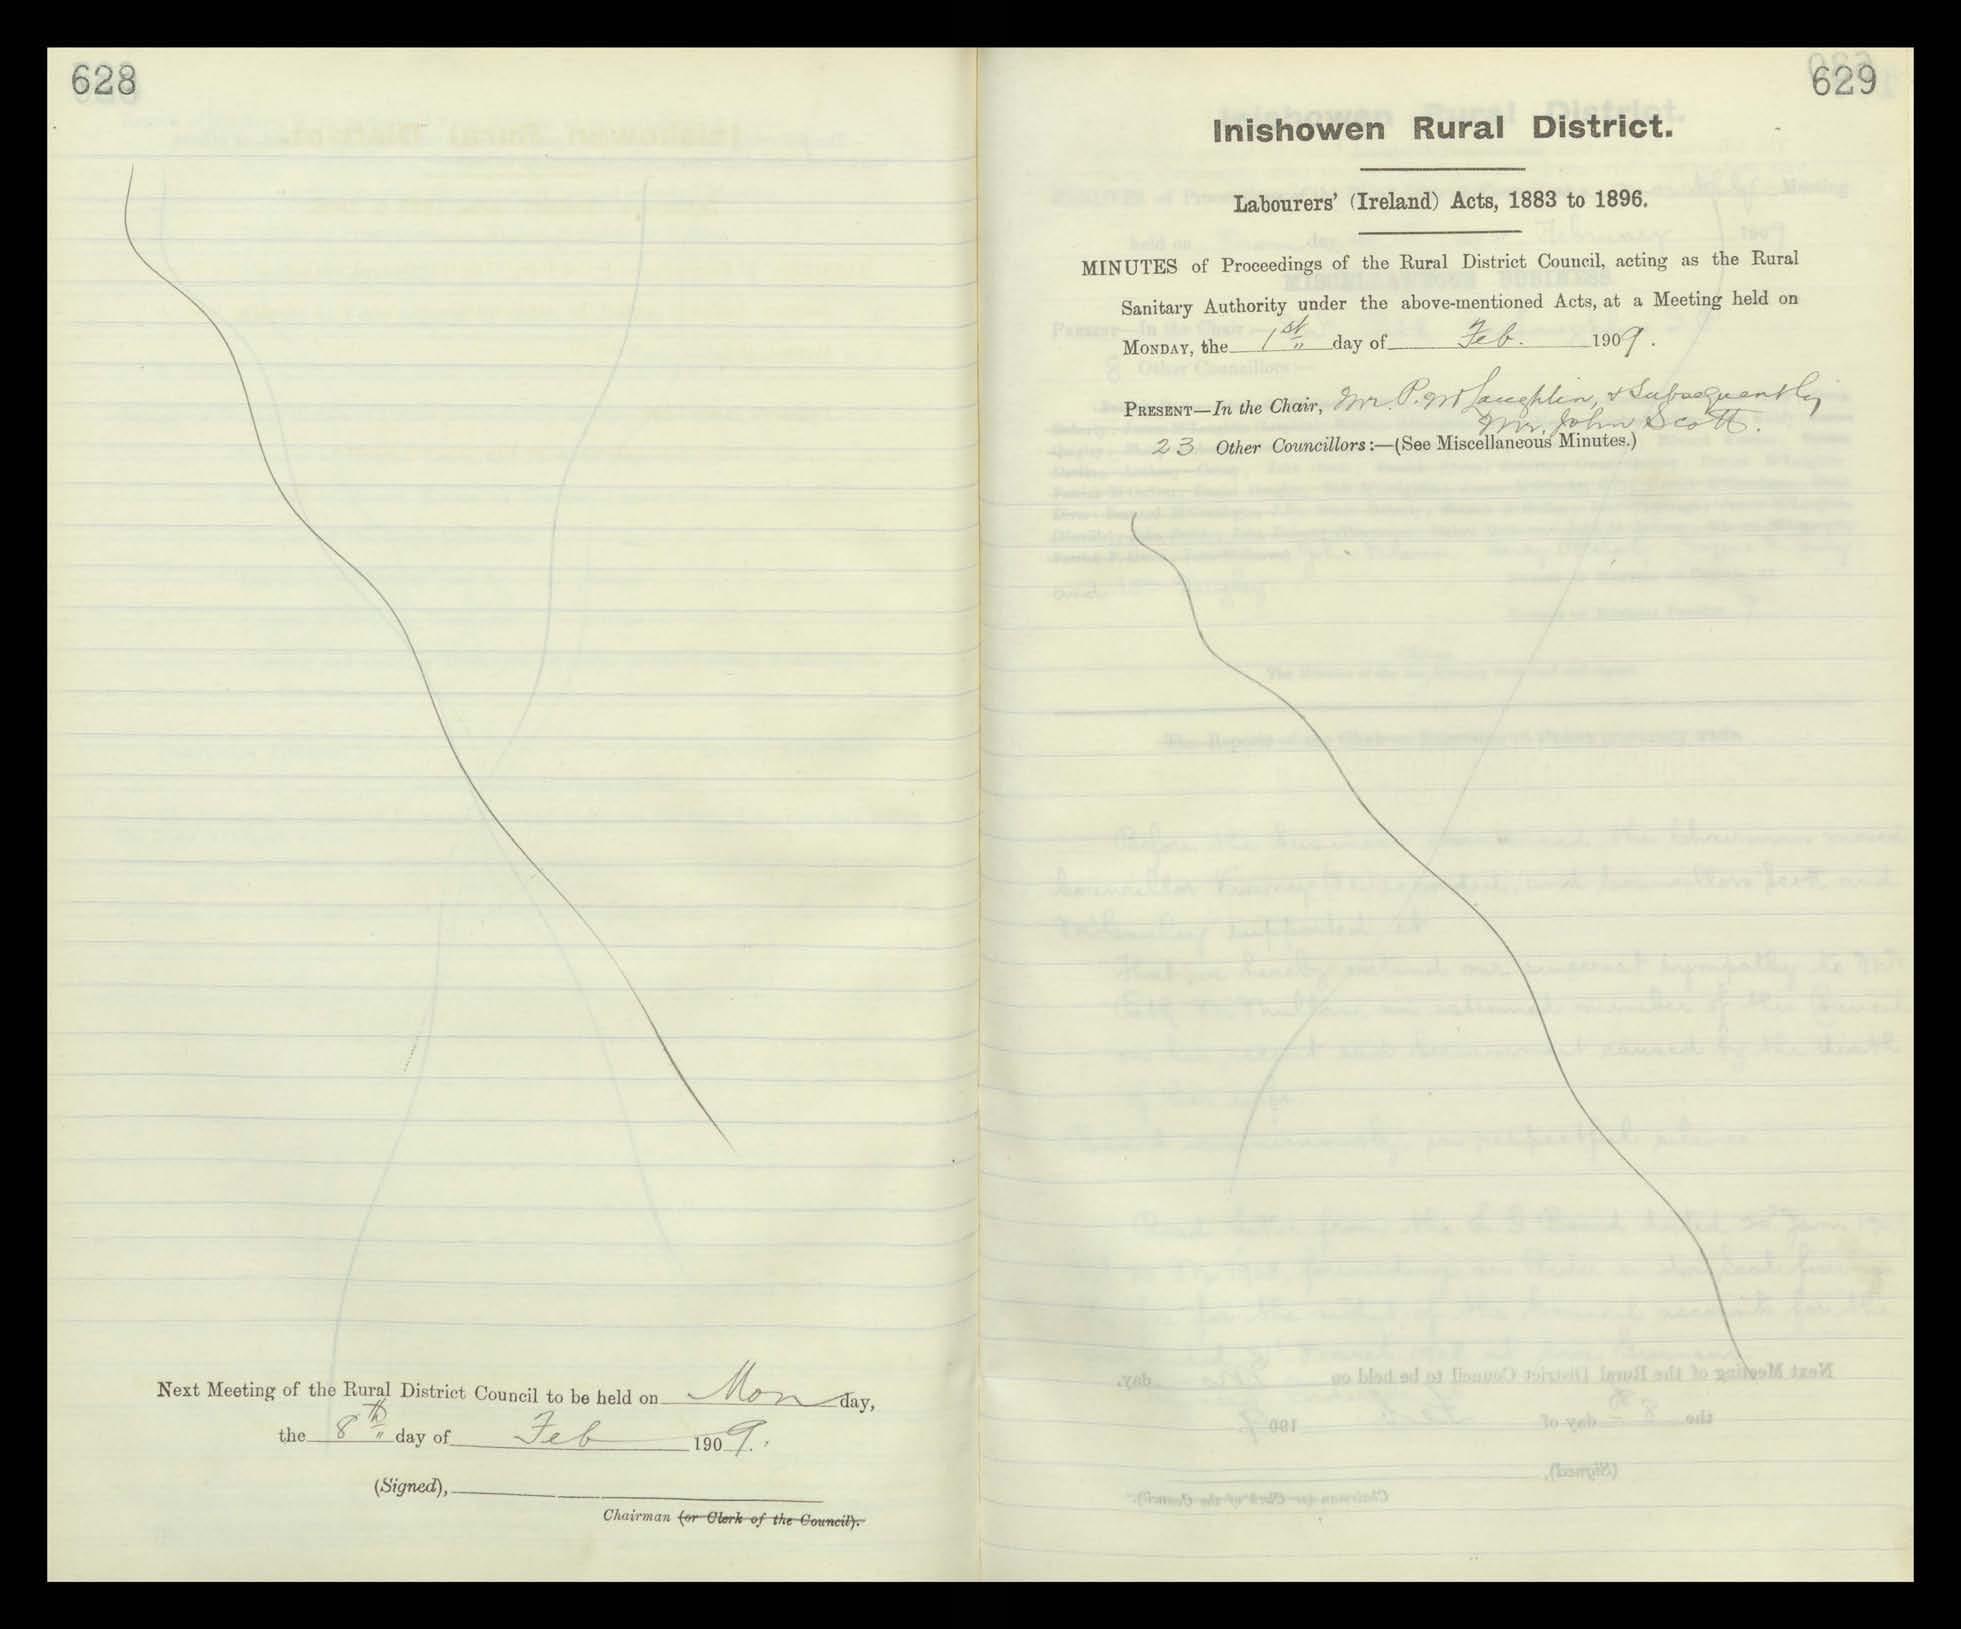 628
Next Meeting of the Rural District Council to be held on Monday,
the 8th day of Feb 1909.
(Signed),
Chairman (or Clerk of the Council).
629
Inishowen Rural District.
Labourers' (Ireland) Acts, 1883 to 1896.
MINUTES of Proceedings of the Rural District Council, acting as the Rural
Sanitary Authority under the above-mentioned Acts, at a Meeting held on
MONDAY, the 1st day of Feb. 1909.
PRESENT—In the Chair, Mr. P. McLaughlin, & Subsequently
Mr. John Scott.
23 Other Councillors:—(See Miscellaneous Minutes.)